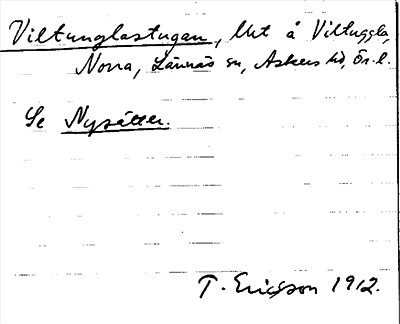 Viltugglastugan, lht å Viltuggla,
Norra, Lännäs sn, Askers hd, Ör. l.
Se Nysätter.
T. Ericsson 1912.